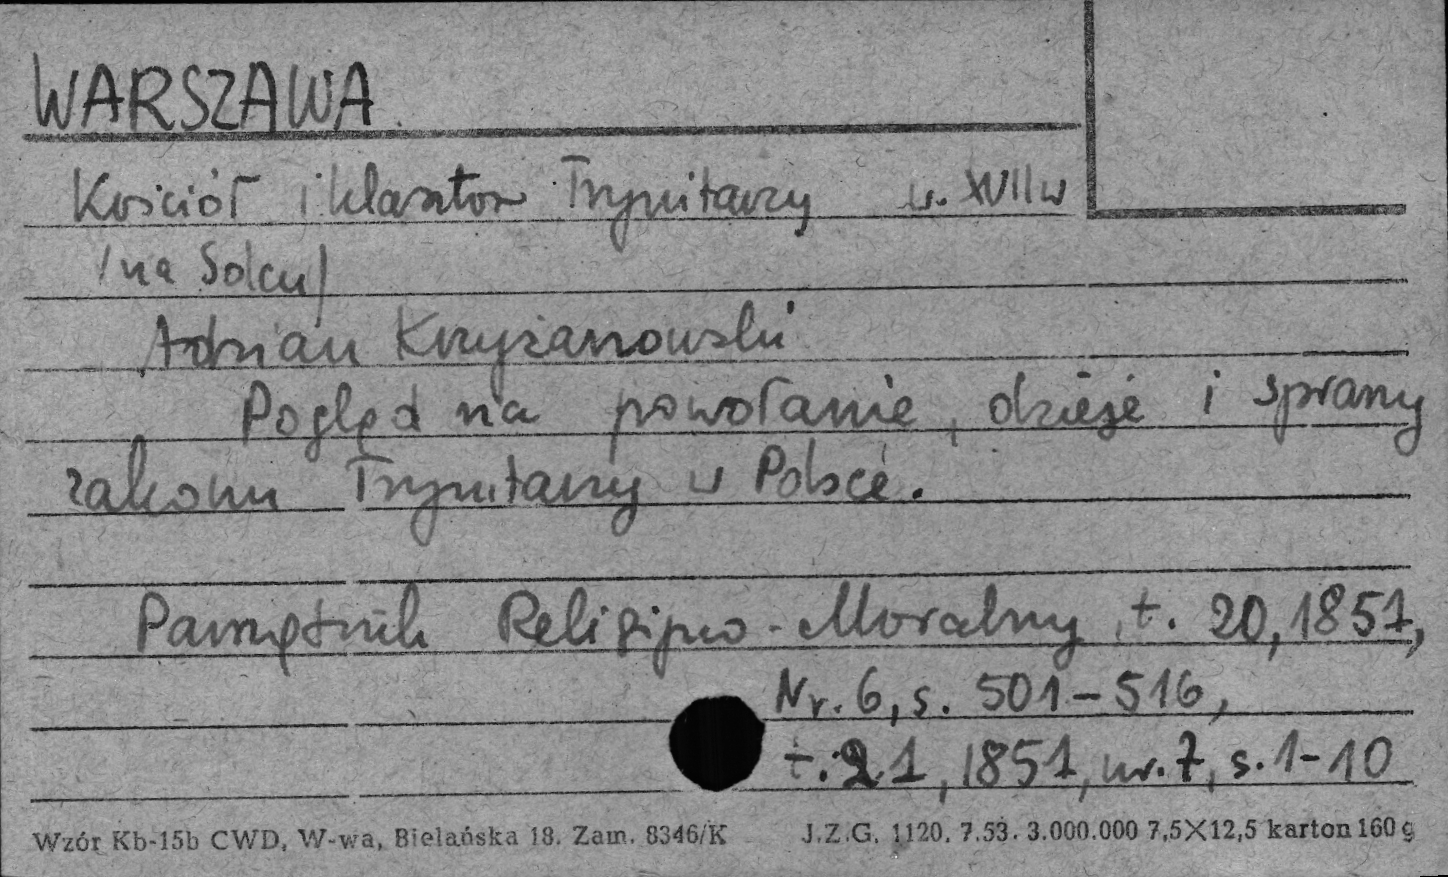 WARSZAWA
Kościół i klasztor Trynitarzy w. XVII w
/na Solcu/
Adrian Krzyżanowski
Pogląd na powołanie, dzieje i sprawy
zakonu Trynitarzy w Polsce.
Pamiętnik Religijno-Moralny, t. 20, 1851,
Nr. 6, s. 501-516,
t. 21, 1851, nr. 7, s. 1-10
Wzór Kb-15b CWD, W-wa, Bielańska 18. Zam. 8346/K J.Z.G. 1120. 7.53. 3.000.000 7,5×12,5 karton 160 g